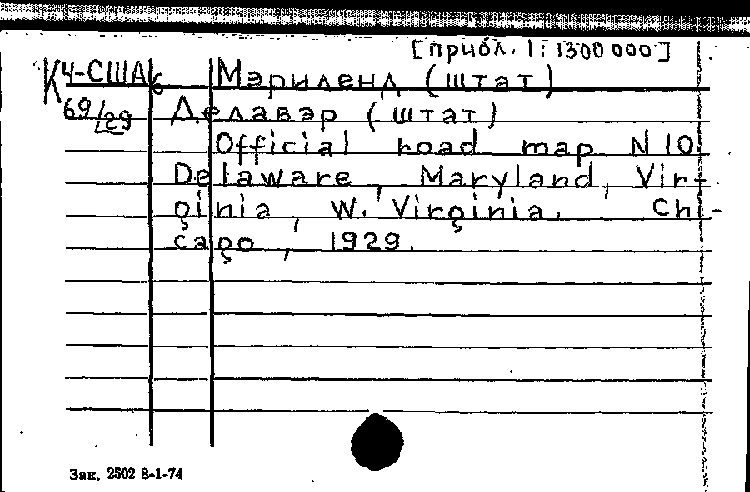 [прибл. 1:1300 000]
К4-США6 Мэриленд (штат)
69/29 Делавэр (штат)
Official road map N 10.
Delaware, Maryland, Vir-
ginia, W. Virginia. Chi-
cago, 1929.
Зак. 2502 8-1-74